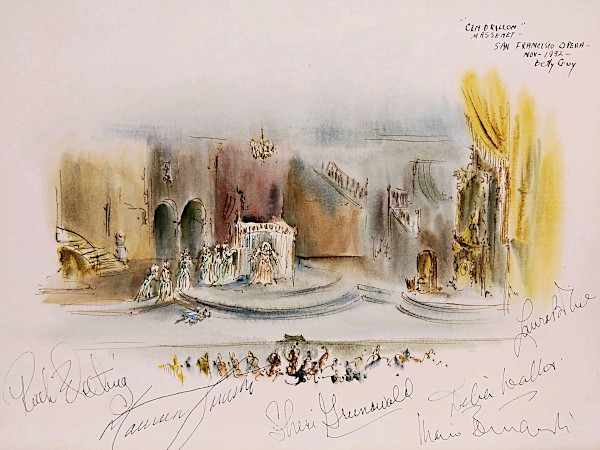 "CENDRILLON"
MASSENET -
SAN FRANCISCO OPERA -
NOV - 1982 -
Betty Guy
Ruth Welting
Maureen Forrester
Sheri Greenawald
Delia Wallis
Mario Bernardi